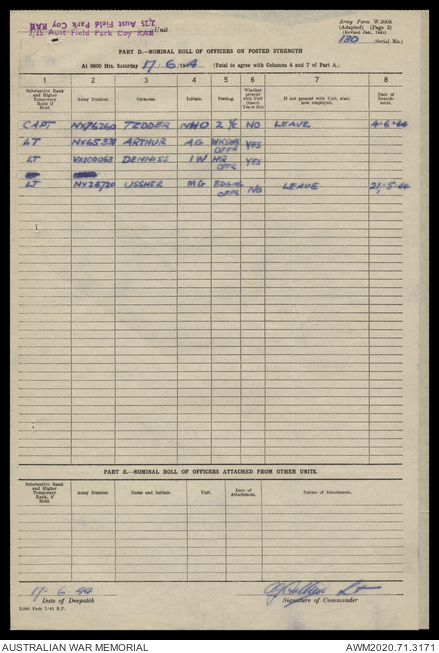 2/25 Aust Field Park Coy RAE
2/25 Aust Field Park Coy RAE Unit
Army Form W.3008
(Adapted) (Page 2)
(Revised Jan., 1943)
130 (Serial No.)
PART D.—NOMINAL ROLL OF OFFICERS ON POSTED STRENGTH
At 0600 Hrs. Saturday 17/6/1944 (Total to agree with Columns 4 and 7 of Part A.)
1 2 3 4 5 6 7 8
Substantive Rank and Higher Temporary Rank if Held. Army Number. Surname. Initials. Posting. Whether present with Unit (Insert Yes or No) If not present with Unit, state how employed. Date of Detach-ment.
CAPT NX76260 TEDDER NHO 2 I/C NO LEAVE 4-6-44
LT NX65331 ARTHUR AG WKSHPS OFFR YES
LT VX100063 DENNISS IW HQ OFFR YES
LT NX28720 USSHER MG BDGING OFFR NO LEAVE 21-5-44
PART E.—NOMINAL ROLL OF OFFICERS ATTACHED FROM OTHER UNITS.
Substantive Rank and Higher Temporary Rank, if Held. Army Number. Name and Initials. Unit. Date of Attachment. Nature of Attachment.
17-6-44
Date of Despatch
Lt
Signature of Commander
AUSTRALIAN WAR MEMORIAL
AWM2020.71.3171